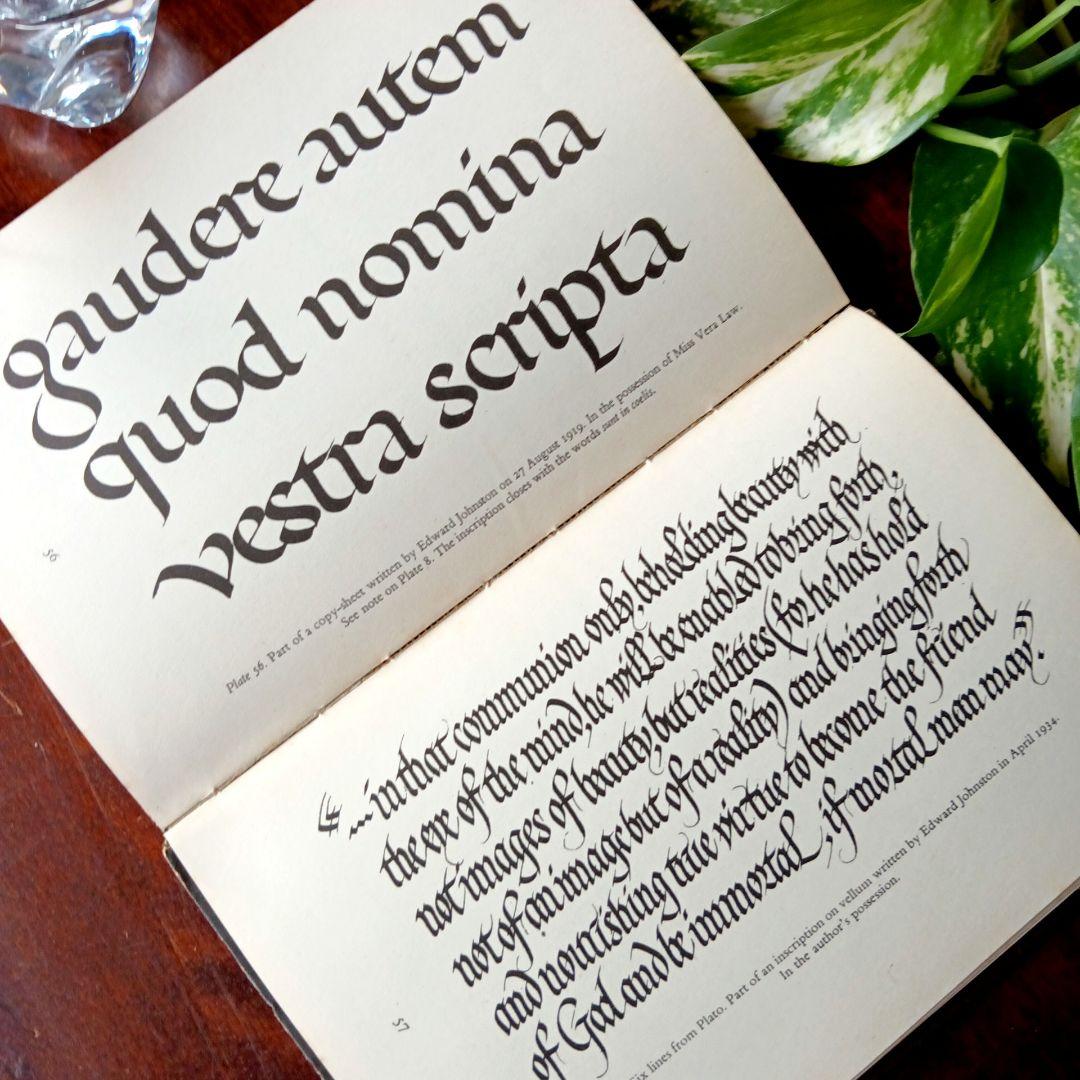 gaudere autem
quod nomina
vestra scripta
Plate 56. Part of a copy-sheet written by Edward Johnston on 27 August 1919. In the possession of Miss Vera Law.
See note on Plate 8. The inscription closes with the words sunt in coelis.
56
“... in that communion only, beholding beauty with
the eye of the mind, he will be enabled to bring forth,
not images of beauty, but realities (for he has hold
not of an image but of a reality) and bringing forth
and nourishing true virtue to become the friend
of God and be immortal, if mortal man may.”
Six lines from Plato. Part of an inscription on vellum written by Edward Johnston in April 1934.
In the author's possession.
57